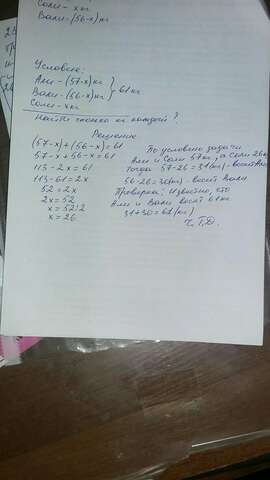 Соли - х кг
Вали - (56-х) кг
Условие:
Али - (57-х) кг
Вали - (56-х) кг } 61 кг
Соли - х кг
Найти сколько кг каждый?
Решение
(57-х)+(56-х)=61
57-х+56-х=61
113-2х=61
113-61=2х
52=2х
2х=52
х=52:2
х=26
По условию задачи
Али и Соли 57 кг, а Соли 26 кг
Тогда 57-26=31 (кг) - весит Али
56-26=30 (кг) - весит Вали
Проверка: Известно, что
Али и Вали весят 61 кг
31+30=61 (кг)
Ч.Т.Д.